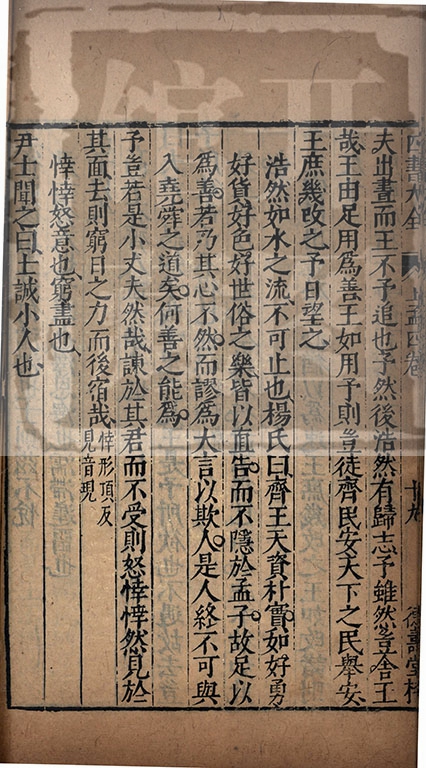 四書大全 上孟四卷 十九 德壽堂梓
夫出晝而王不予追也予然後浩然有歸志予雖然豈舍王
哉王由足用為善王如用予則豈徒齊民安天下之民舉安
王庶幾改之予日望之
浩然如水之流不可止也楊氏曰齊王天資朴實如好勇
好貨好色好世俗之樂皆以直告而不隱於孟子故足以
為善若乃其心不然而謬為大言以欺人是人終不可與
入堯舜之道矣何善之能為
予豈若是小丈夫然哉諫於其君而不受則怒悻悻然見於
其面去則窮日之力而後宿哉悻形頂反
見音現
悻悻怒意也窮盡也
尹士聞之曰士誠小人也